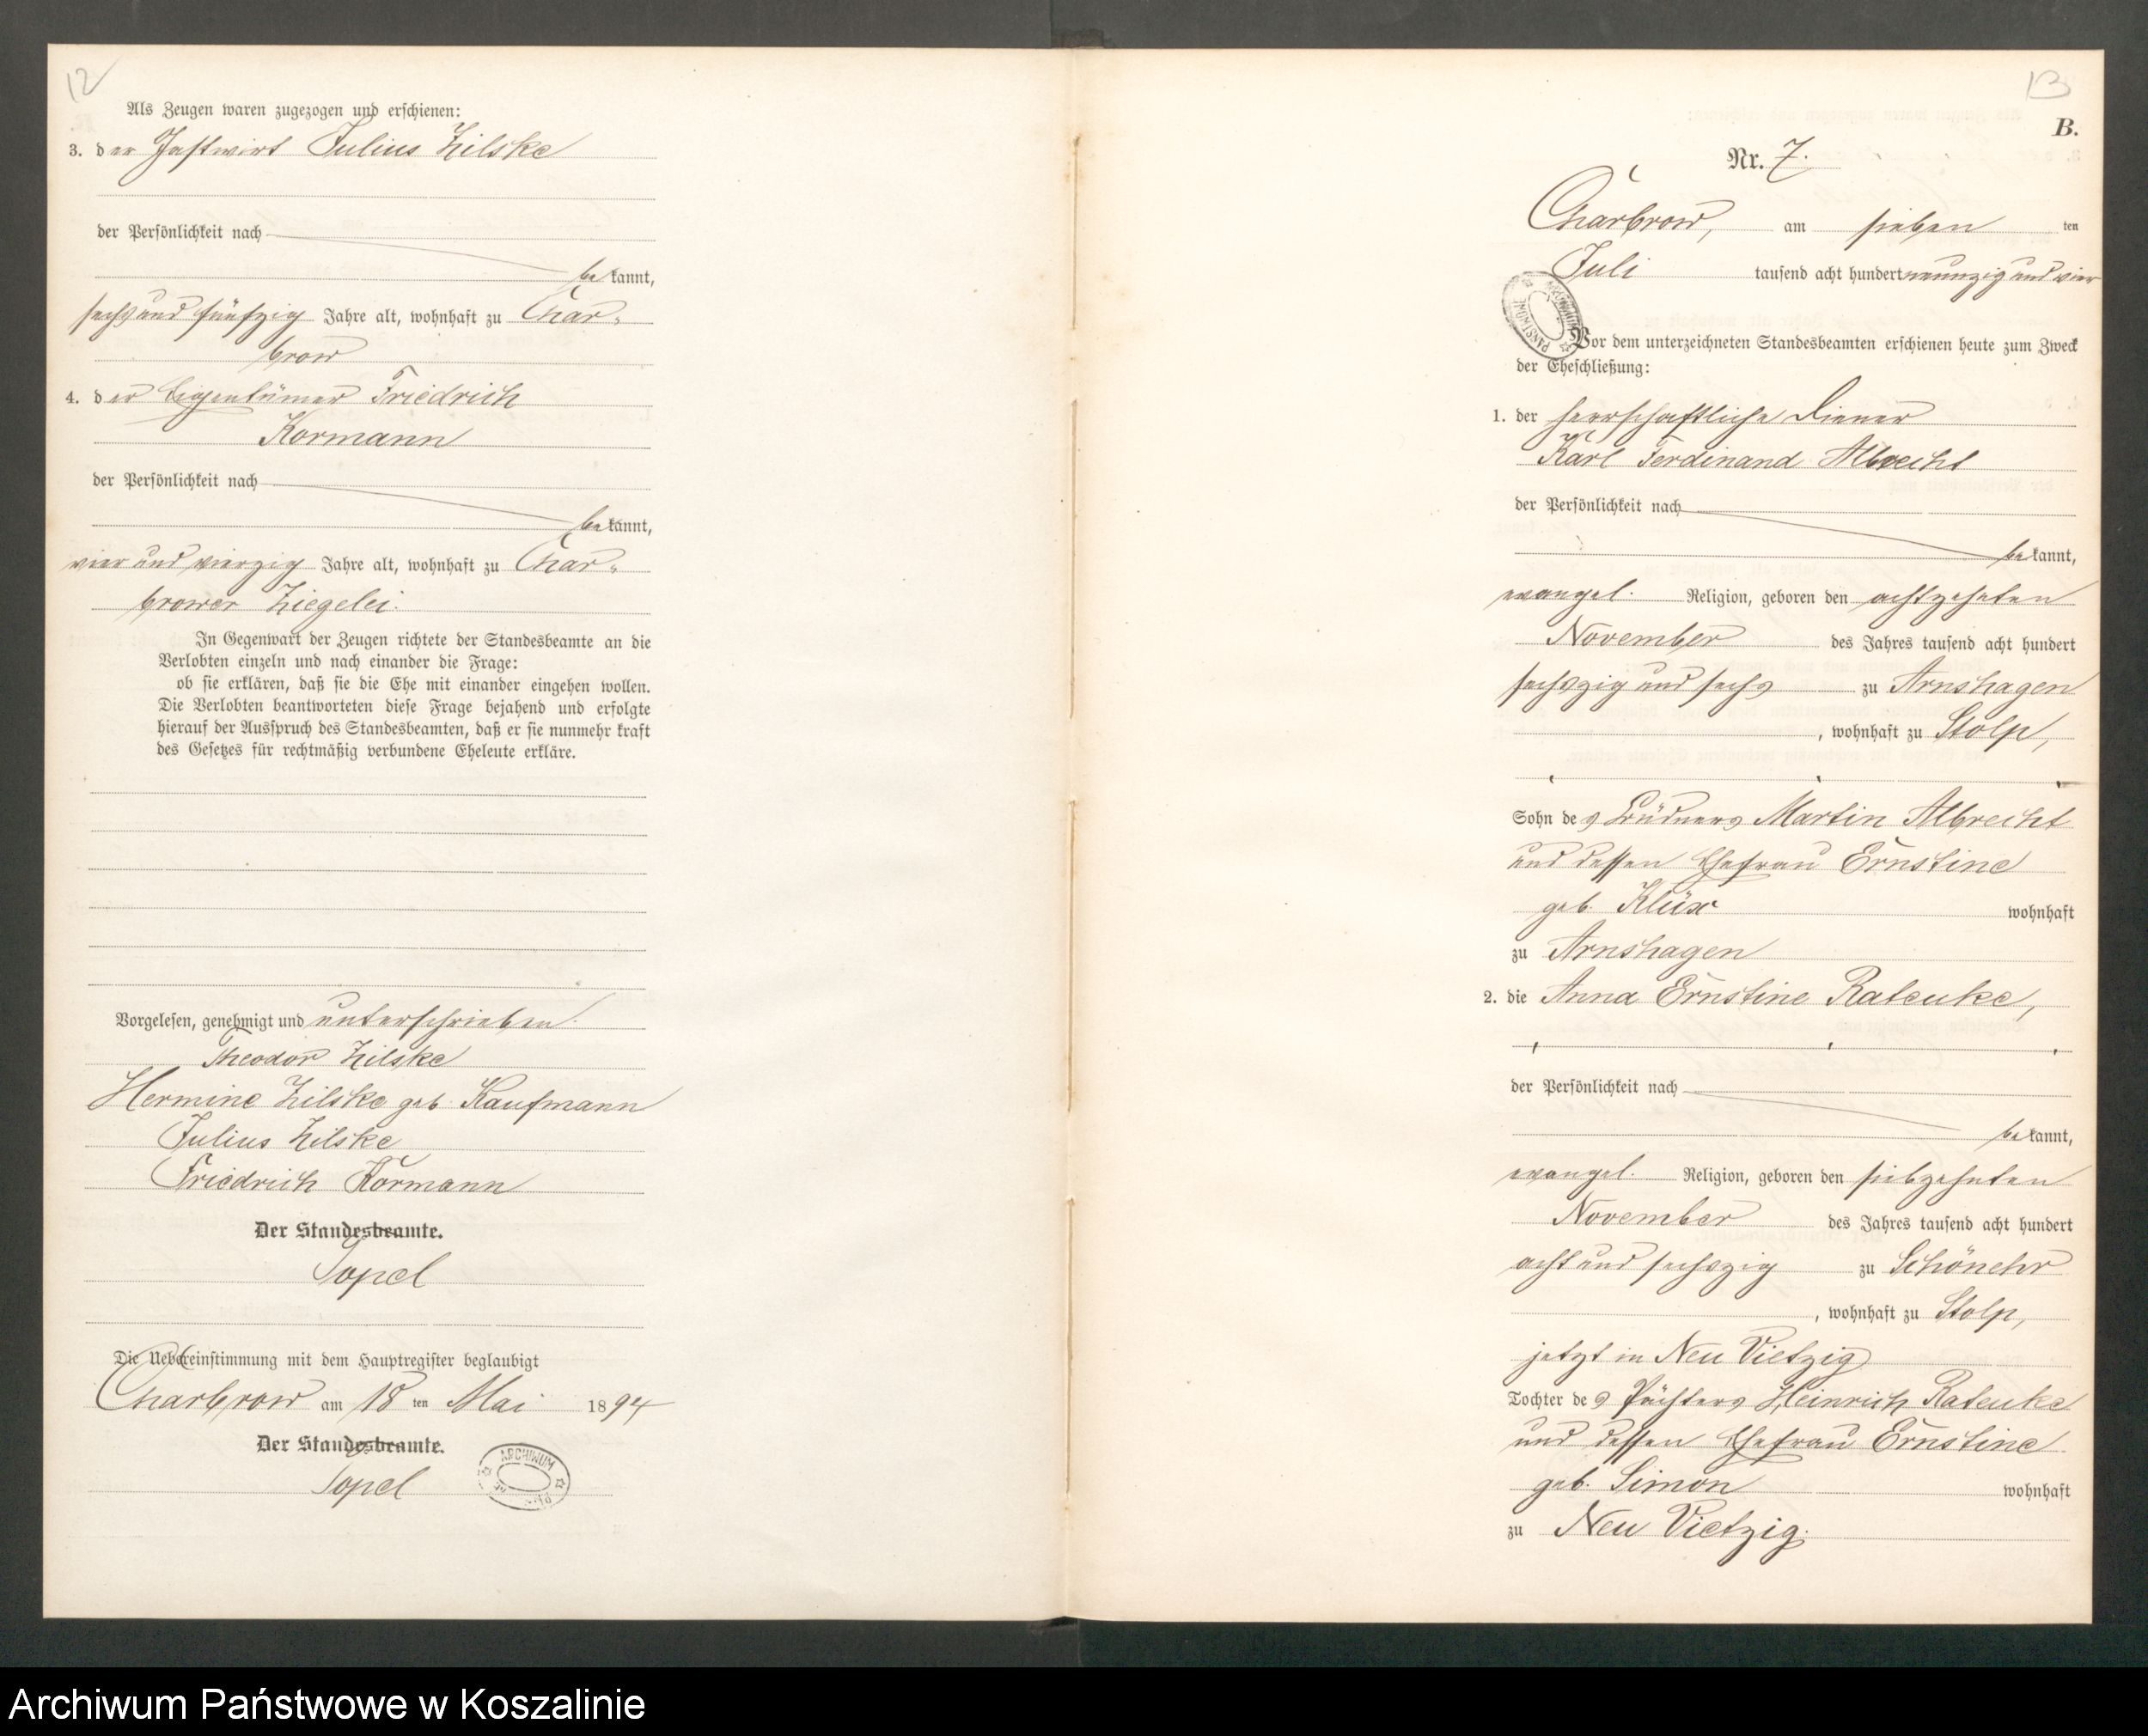 12
Als Zeugen waren zugezogen und erschienen:
3. der Gastwirt Julius Zilske
der Persönlichkeit nach
bekannt,
sechs und fünfzig Jahre alt, wohnhaft zu Char-
brow
4. der Eigentümer Friedrich
Kormann
der Persönlichkeit nach
bekannt,
vier und vierzig Jahre alt, wohnhaft zu Char-
brower Ziegelei.
In Gegenwart der Zeugen richtete der Standesbeamte an die
Verlobten einzeln und nach einander die Frage:
ob sie erklären, daß sie die Ehe mit einander eingehen wollen.
Die Verlobten beantworteten diese Frage bejahend und erfolgte
hierauf der Ausspruch des Standesbeamten, daß er sie nunmehr kraft
des Gesetzes für rechtmäßig verbundene Eheleute erkläre.
Vorgelesen, genehmigt und unterschrieben.
Theodor Zilske
Hermine Zilske geb. Kaufmann
Julius Zilske
Friedrich Kormann
Der Standesbeamte.
Papel
Die Uebereinstimmung mit dem Hauptregister beglaubigt
Charbrow am 18 ten Mai 1894
Der Standesbeamte.
Papel
ARCHIWUM
13
B.
Nr. 7.
Charbrow, am sieben ten
Juli tausend acht hundert neunzig und vier
Vor dem unterzeichneten Standesbeamten erschienen heute zum Zweck
der Eheschließung:
1. der herrschaftliche Diener
Karl Ferdinand Albrecht
der Persönlichkeit nach
bekannt,
evangel. Religion, geboren den achtzehnten
November des Jahres tausend acht hundert
sechszig und sechs zu Arnshagen
, wohnhaft zu Stolp,
Sohn des Büdners Martin Albrecht
und dessen Ehefrau Ernstine
geb. Klüx wohnhaft
zu Arnshagen
2. die Anna Ernstine Rateuke,
der Persönlichkeit nach
bekannt,
evangel. Religion, geboren den siebzehnten
November des Jahres tausend acht hundert
acht und sechszig zu Schönehr
, wohnhaft zu Stolp,
jetzt in Neu Vietzig
Tochter des Pächters Heinrich Rateuke
und dessen Ehefrau Ernstine
geb. Simon wohnhaft
zu Neu Vietzig.
Archiwum Państwowe w Koszalinie